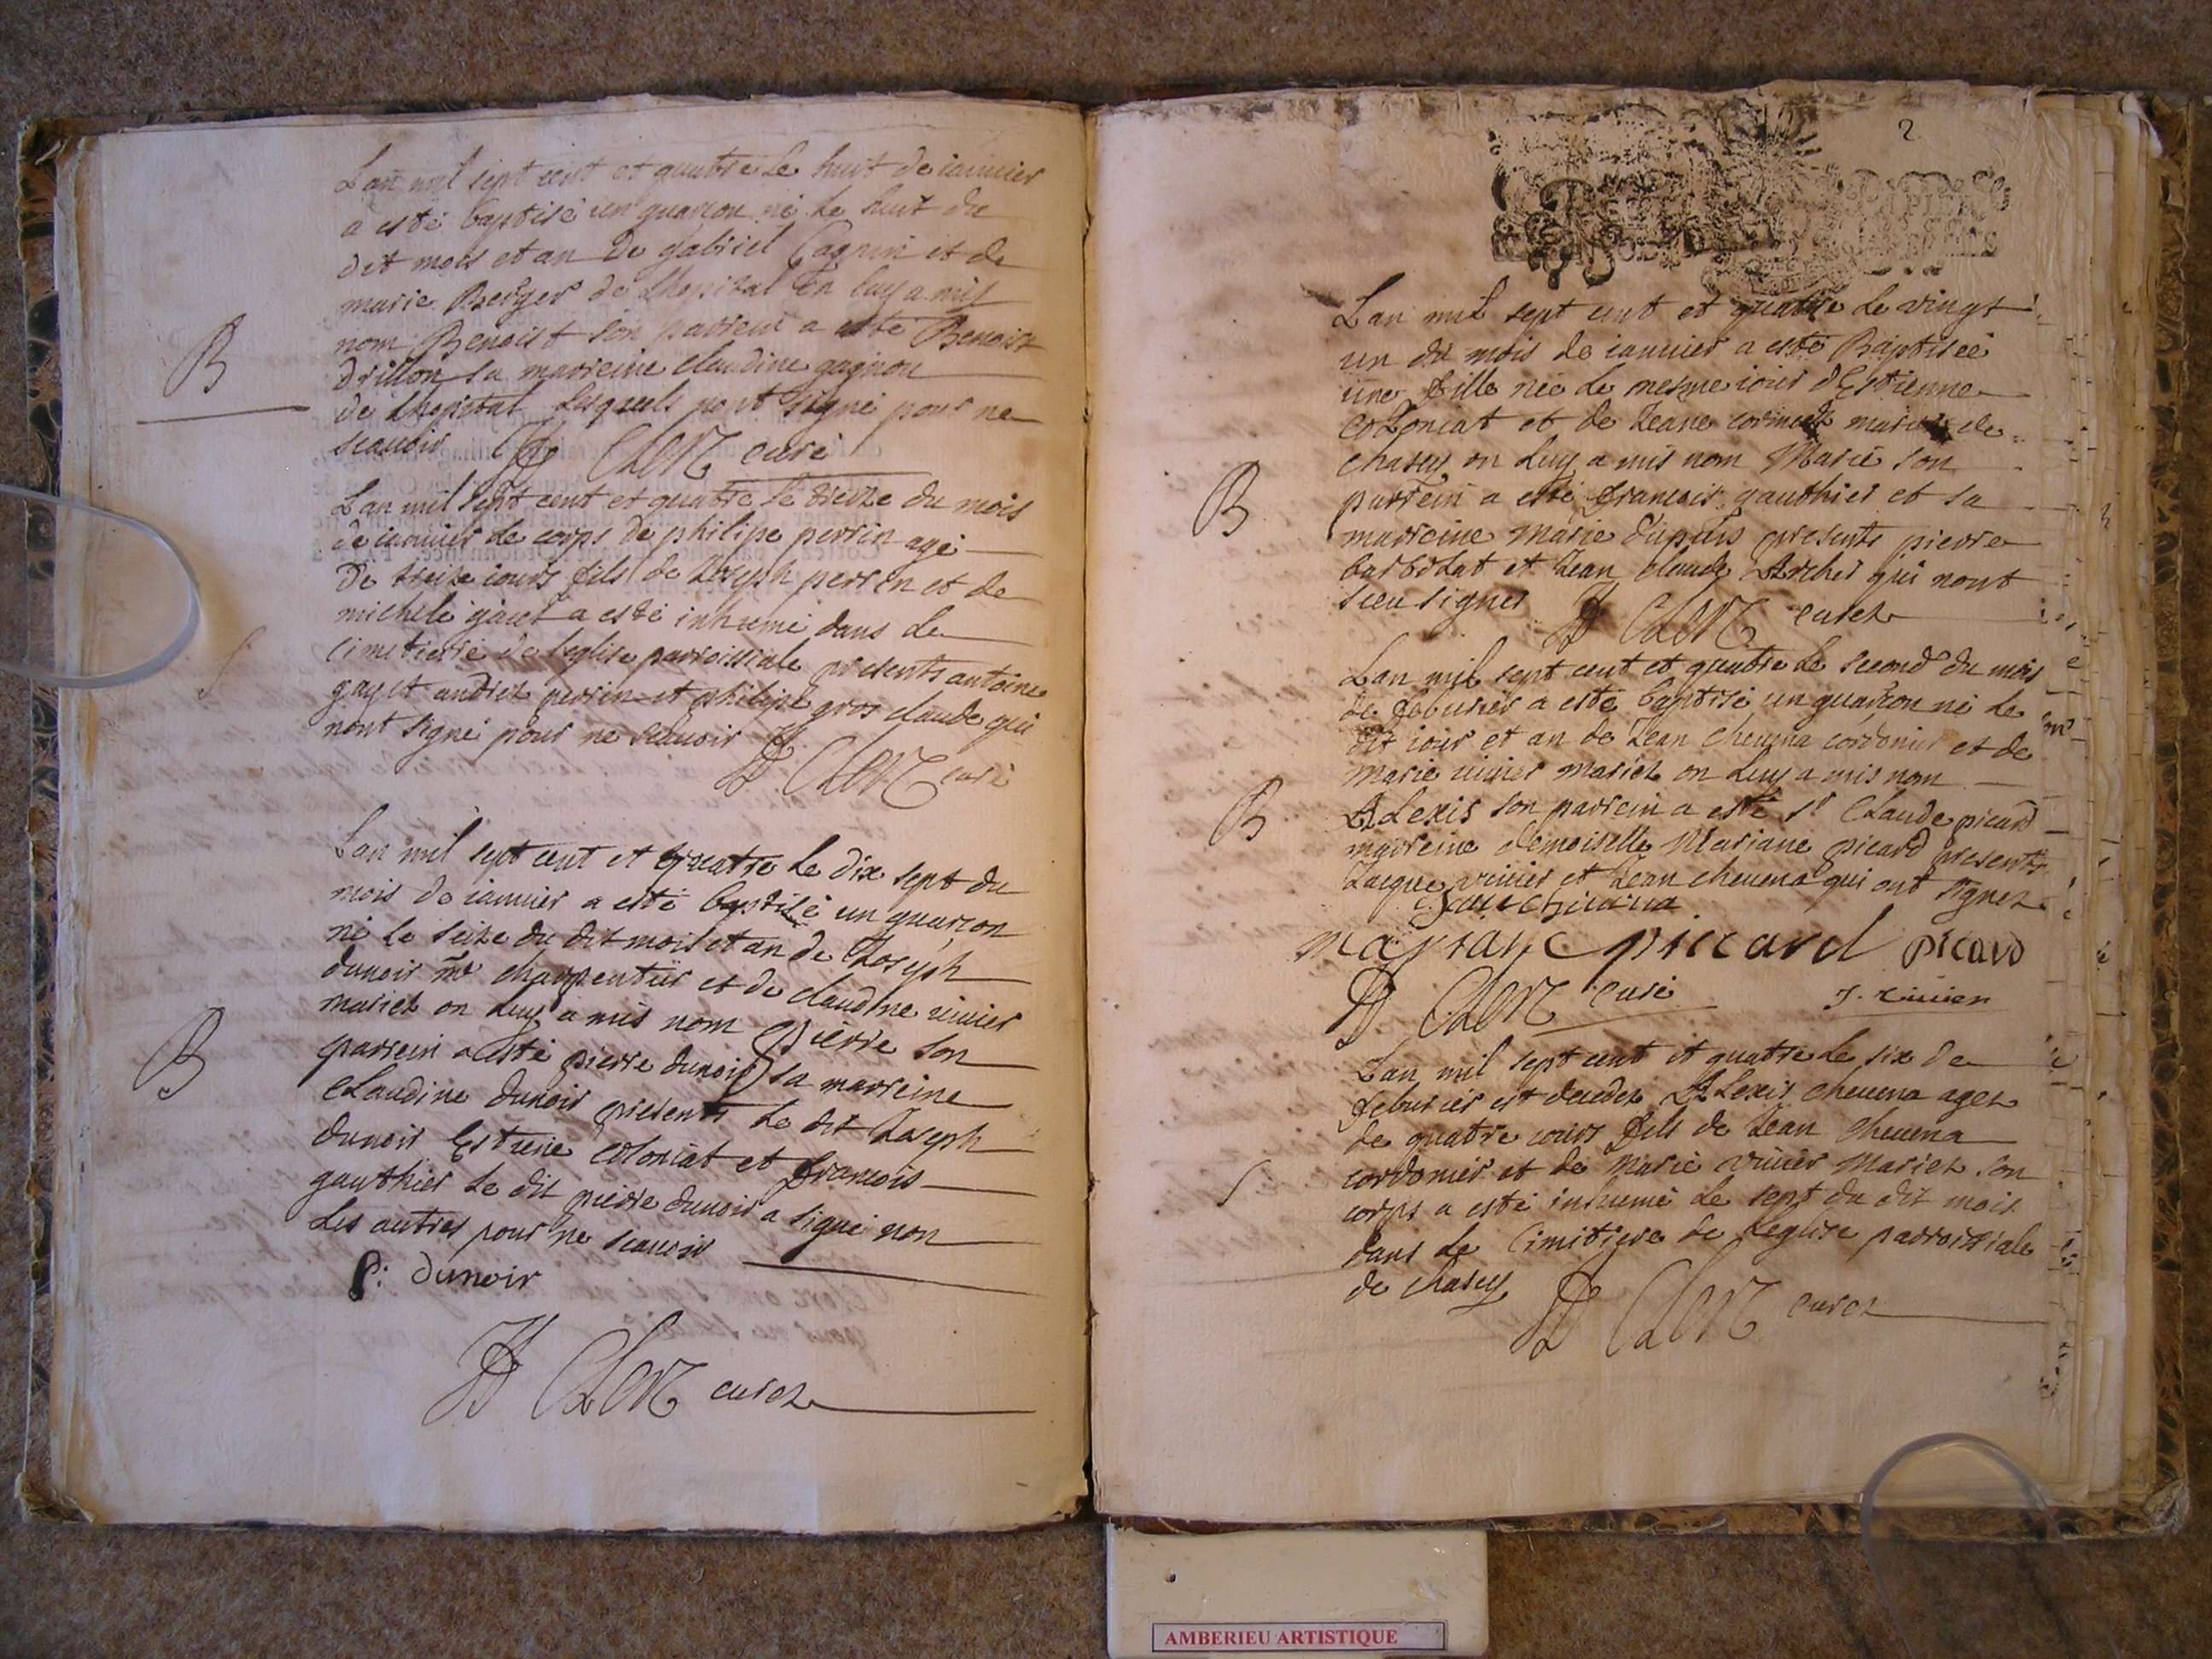 Lan mil sept cent et quattre le huit de ianuier
a esté baptisé un guarcon né le huit du
dit mois et an de gabriel Gagnin et de
marie Berger de Lhopital on luy a mis
nom Benoist son parrein a esté Benoist
Drillon sa marreine claudine gagnon
de Lhopital lesquels nont signé pour ne
scauoir Clerc curé
B
Lan mil sept cent et quatre le treize du mois
de ianuier le corps de philipe perrin agé
de treize iours fils de Joseph perrin et de
michele a esté inhumé dans le
cimetiere de leglise parroissiale presents antoine
gay et andrez perrin et philipe gros claude qui
nont signé pour ne scauoir
Clerc curé
S
Lan mil sept cent et quatre le dix sept du
mois de ianuier a esté baptisé un guarcon
né le seize du dit mois et an de Joseph
dunoir me charpentier et de claudine uiuier
mariez on luy a mis nom pierre son
parrein a esté pierre dunoir sa marreine
claudine dunoir presents le dit Joseph
dunoir Estiene coloniat et francois
gauthier le dit pierre dunoir a signé non
les autres pour ne scauoir
B
P: dunoir
Clerc curez
2
Lan mil sept cent et quatre le vingt
un du mois de ianuier a esté Baptiseé
une fille neé le mesme iour dEstienne
Coloniat et de Jeane mariez de
chasey on luy a mis nom Marie son
parrein a esté francois gauthier et sa
marreine marie dupuis presents pierre
et Jean claude Archer qui nont
sceu signer Clerc curez
B
Lan mil sept cent et quatre le second du mois
de feburier a esté baptisé un guarcon né le
dit iour et an de Jean cheuena cordonier et de
marie uiuier mariez on luy a mis nom
Alexis son parrein a esté sr Claude picard
marreine demoiselle Mariane picard presents
Jacque viuier et Jean cheuena qui ont signez
B
Jean cheuena
mariane piccard picard
Clerc curé J. uiuier
Lan mil sept cent et quatre le six de
feburier est decedez Alexis cheuena agez
de quatre iours fils de Jean cheuena
cordonier et de marie viuier mariez son
corps a esté inhumé le sept du dit mois
dans le cimitiere de leglise parroissiale
de chasey Clerc curez
S
AMBERIEU ARTISTIQUE